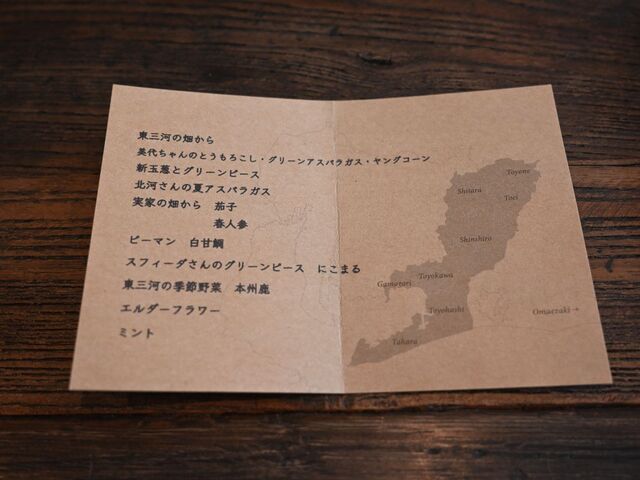 東三河の畑から
美代ちゃんのとうもろこし・グリーンアスパラガス・ヤングコーン
新玉葱とグリーンピース
北河さんの夏アスパラガス
実家の畑から　茄子
春人参
ピーマン　白甘鯛
スフィーダさんのグリーンピース　にこまる
東三河の季節野菜　本州鹿
エルダーフラワー
ミント
Toyone
Shitara
Toei
Shinshiro
Toyokawa
Gamagori
Toyohashi
Omaezaki→
Tahara